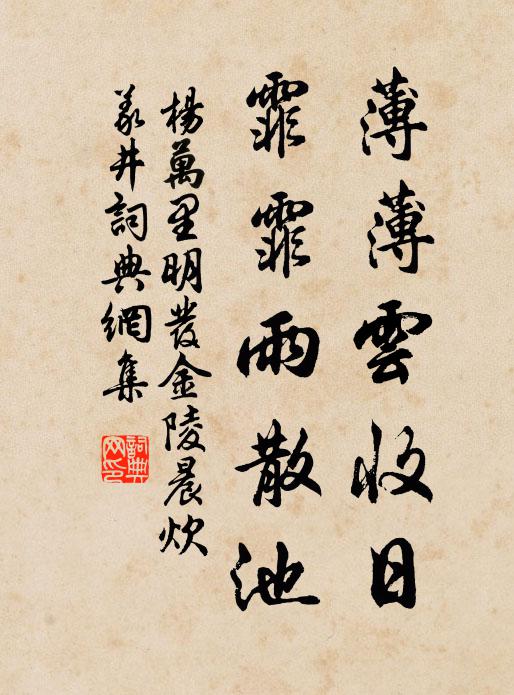 薄薄雲收日
霏霏雨散池
楊萬里明發金陵晨炊
義井詞典網集
詞典
网印